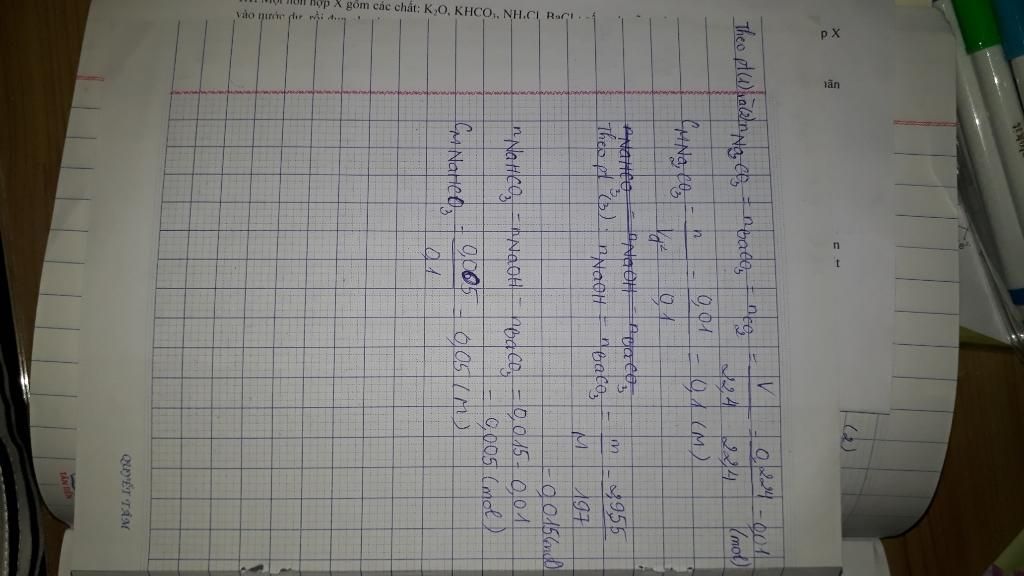 X gồm các chất: K₂O, KHCO₃, NH₄Cl, BaCl₂
p X
n
t
(2)
Theo pt (1) và (2) nNa₂CO₃ = nBaCO₃ = nCO₂ = V/22,4 = 0,224/22,4 = 0,01 (mol)
CMNa₂CO₃ = n/Vdd = 0,01/0,1 = 0,1 (M)
nNaHCO₃ = nNaOH = nBaCO₃
Theo pt (3): nNaOH = nBaCO₃ = m/M = 2955/197 = 0,015 (mol)
nNaHCO₃ = nNaOH - nBaCO₃ = 0,015 - 0,01
= 0,005 (mol)
CMNaHCO₃ = 0,005/0,1 = 0,05 (M)
QUYẾT TÂM